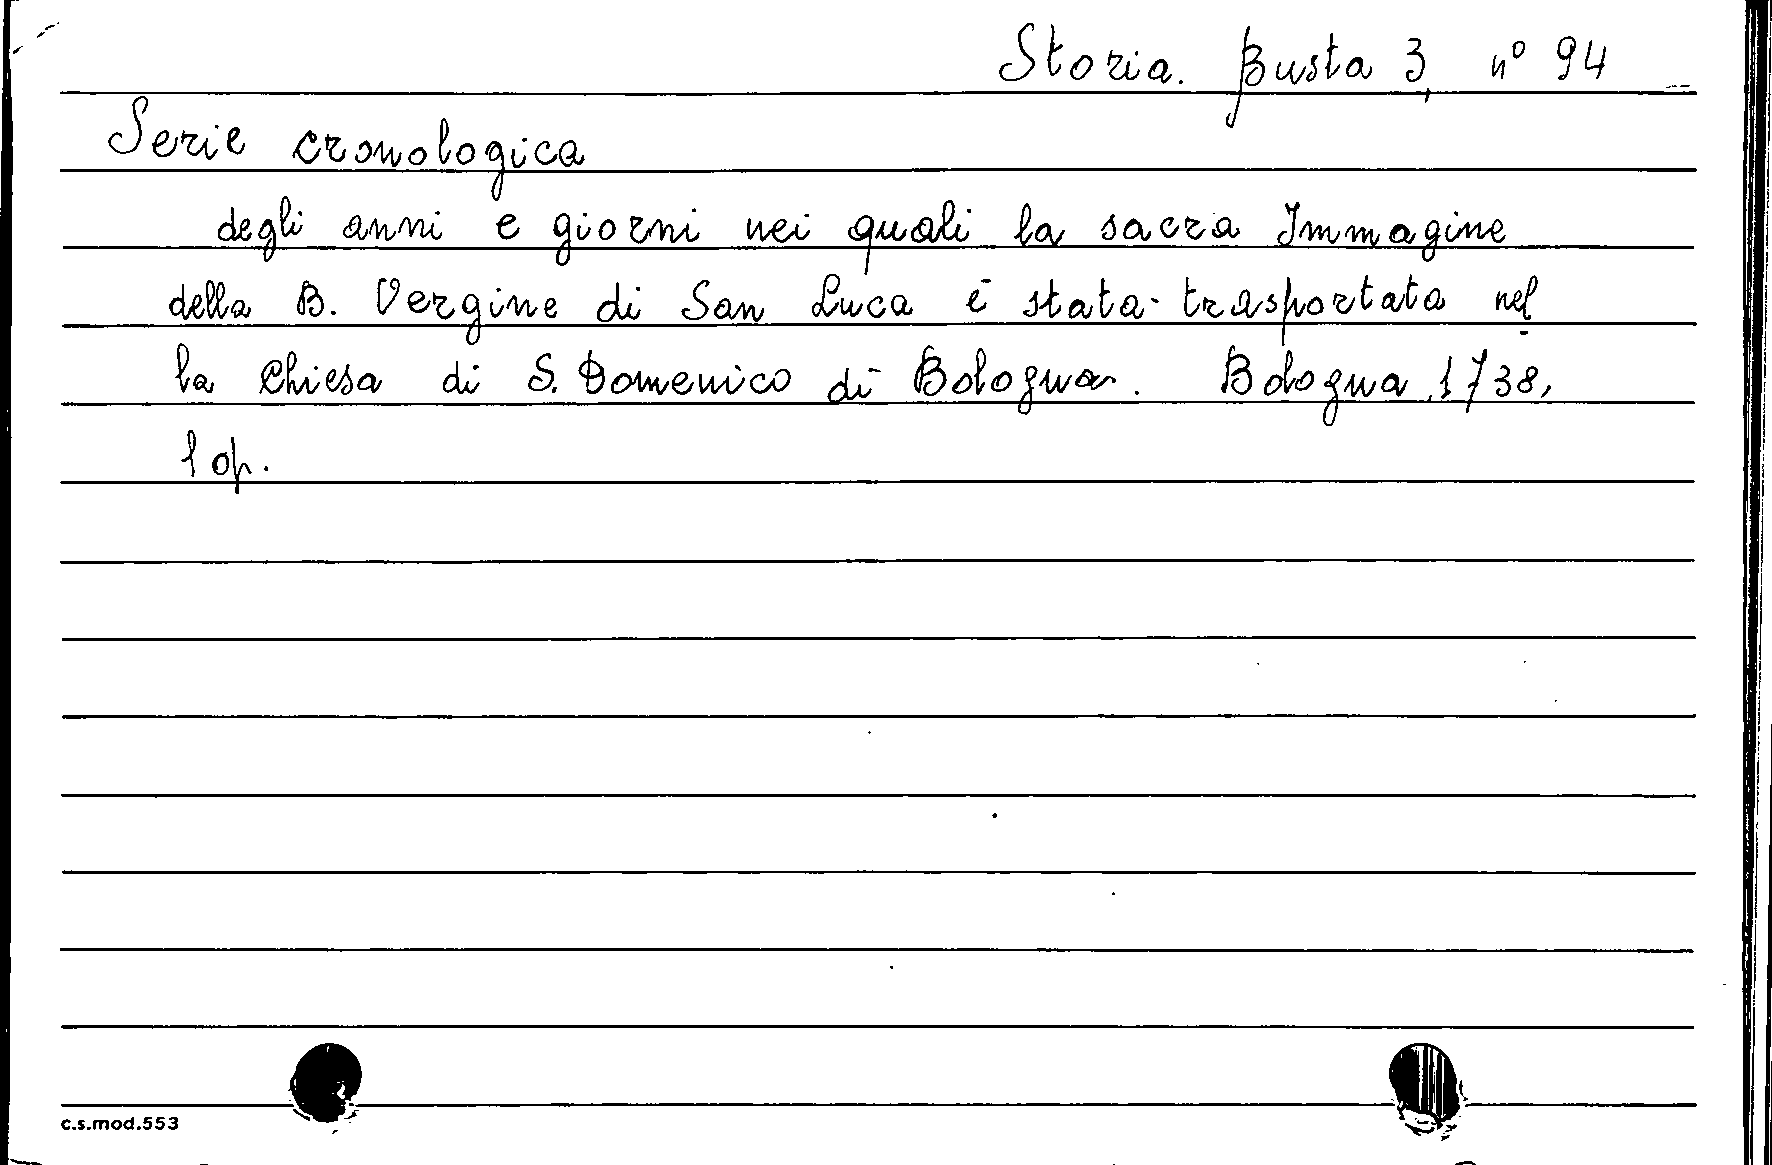 Storia. Busta 3, n° 94
Serie cronologica
degli anni e giorni nei quali la sacra Immagine
della B. Vergine di San Luca è stata trasportata nel
la Chiesa di S. Domenico di Bologna. Bologna, 1738,
1 op.
c.s.mod.553